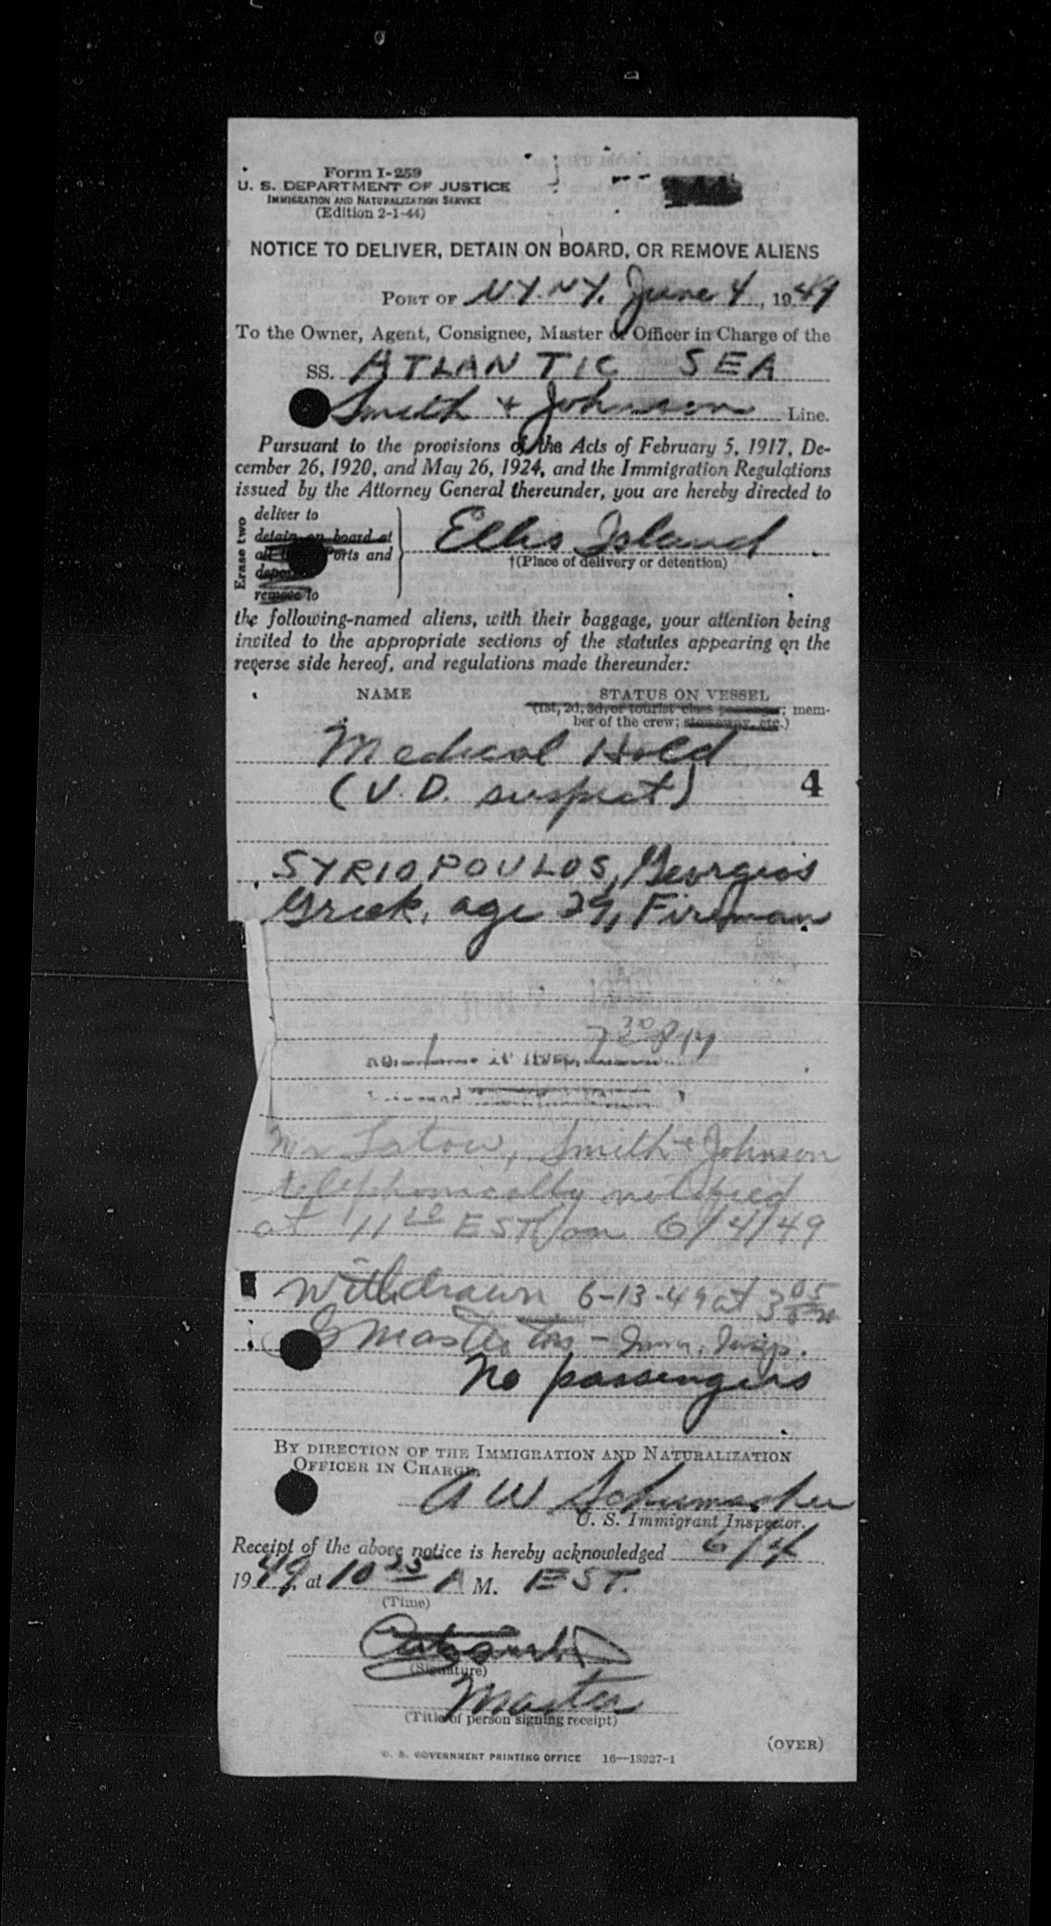 Form I-259
U. S. DEPARTMENT OF JUSTICE
IMMIGRATION AND NATURALIZATION SERVICE
(Edition 2-1-44)
NOTICE TO DELIVER, DETAIN ON BOARD, OR REMOVE ALIENS
PORT OF N.Y. N.Y. June 4, 1949
To the Owner, Agent, Consignee, Master or Officer in Charge of the
SS. ATLANTIC SEA
Smith + Johnson Line.
Pursuant to the provisions of the Acts of February 5, 1917, De-
cember 26, 1920, and May 26, 1924, and the Immigration Regulations
issued by the Attorney General thereunder, you are hereby directed to
Erase two
deliver to
detain on board at
ports and
remove to
Ellis Island
†(Place of delivery or detention)
the following-named aliens, with their baggage, your attention being
invited to the appropriate sections of the statutes appearing on the
reverse side hereof, and regulations made thereunder:
NAME STATUS ON VESSEL
(1st, 2d, 3d, or tourist class passenger; mem-
ber of the crew; stowaway, etc.)
Medical Hold
(V.D. suspect) 4
SYRIOPOULOS, Georgios
Greek, age 29, Fireman
7 30
Mr , Smith + Johnson
telephonically notified
at 11 20 EST on 6/4/49
Withdrawn 6-13-49 at 3 05
Imm. Insp.
No passengers
BY DIRECTION OF THE IMMIGRATION AND NATURALIZATION
OFFICER IN CHARGE.
A W Schumacher
U. S. Immigrant Inspector.
Receipt of the above notice is hereby acknowledged 6/4
1949, at 10 25 A M. EST.
(Time)
(Signature)
Master
(Title of person signing receipt)
(OVER)
U. S. GOVERNMENT PRINTING OFFICE 16—18927-1